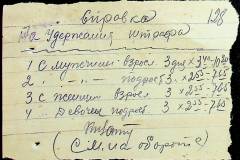 Справка 128
на Удержания штрафа
1 С мужчин взросл. 3 дня
2 " - " - подрост. 3 × 2⁵⁵ - 7⁶⁵
3 С женщин взросл. 3 × 2⁵⁵ - 7⁶⁵
4 Девочек подрост. 3 × 2⁵⁵ - 7⁶⁵
(См. на обороте)